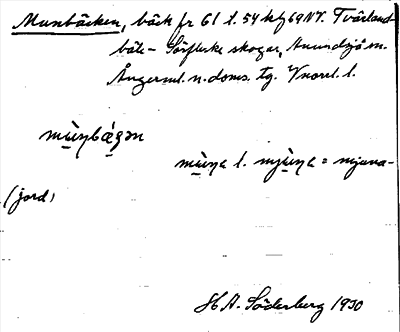 Munbäcken, bäck fr 61 l. 54 kf 69NV. Tvärland
böle - Sörflärke skogar, Anundsjö sn.
Ångerml. n. doms. tg. Vnorrl. l.
mùnbǽgən
mùna l. mjùna = mjuna-
(jord)
H A. Söderberg 1930